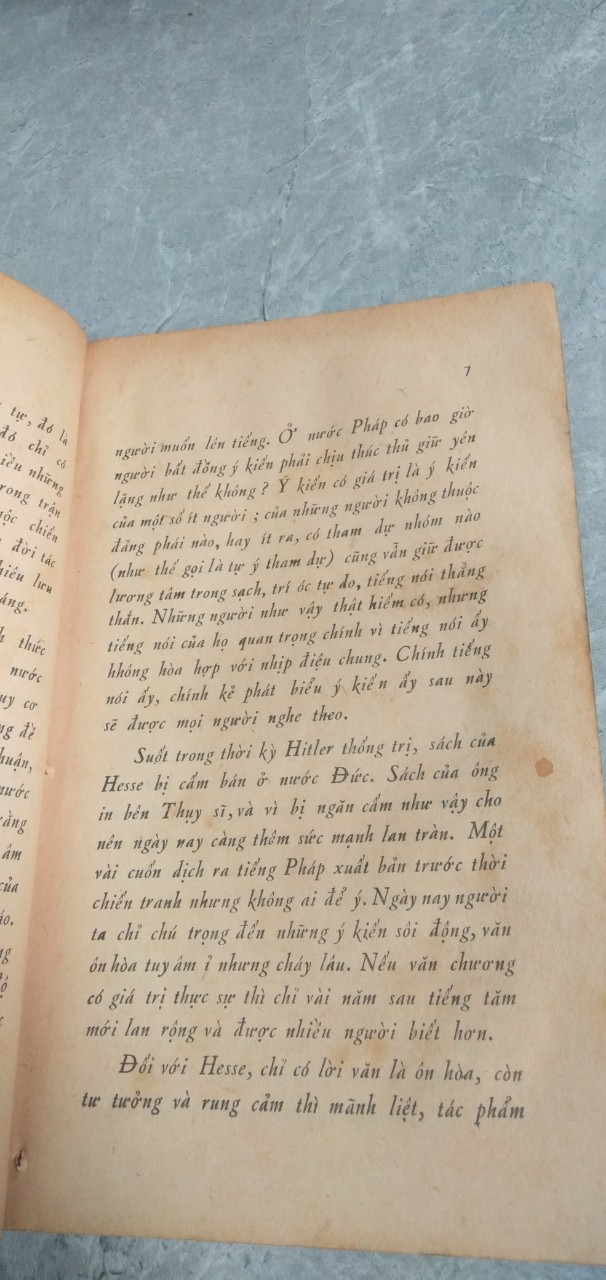 tự, đó là
đó chỉ có
những
trong trận
chiến
đời tác
lưu
thức
nước
cơ
đề
nước
rằng
âm
của
7
người muốn lên tiếng. Ở nước Pháp có bao giờ
người bất đồng ý kiến phải chịu thúc thủ giữ yên
lặng như thế không ? Ý kiến có giá trị là ý kiến
của một số ít người ; của những người không thuộc
đảng phái nào, hay ít ra, có tham dự nhóm nào
(như thể gọi là tự ý tham dự) cũng vẫn giữ được
lương tâm trong sạch, trí óc tự do, tiếng nói thẳng
thắn. Những người như vậy thật hiếm có, nhưng
tiếng nói của họ quan trọng chính vì tiếng nói ấy
hhông hòa hợp với nhịp điệu chung. Chính tiếng
nói ấy, chính kẻ phát biểu ý kiến ấy sau này
sẽ được mọi người nghe theo.
Suốt trong thời kỳ Hitler thống trị, sách của
Hesse bị cấm bán ở nước Đức. Sách của ông
in bên Thụy sĩ, và vì bị ngăn cấm như vậy cho
nên ngày nay càng thêm sức mạnh lan tràn. Một
vài cuốn dịch ra tiếng Pháp xuất bản trước thời
chiến tranh nhưng không ai để ý. Ngày nay người
ta chỉ chú trọng đến những ý kiến sôi động, văn
ôn hòa tuy âm ỉ nhưng cháy lâu. Nếu văn chương
có giá trị thực sự thì chỉ vài năm sau tiếng tăm
mới lan rộng và được nhiều người biết hơn.
Đối với Hesse, chỉ có lời văn là ôn hòa, còn
tư tưởng và rung cảm thì mãnh liệt, tác phẩm